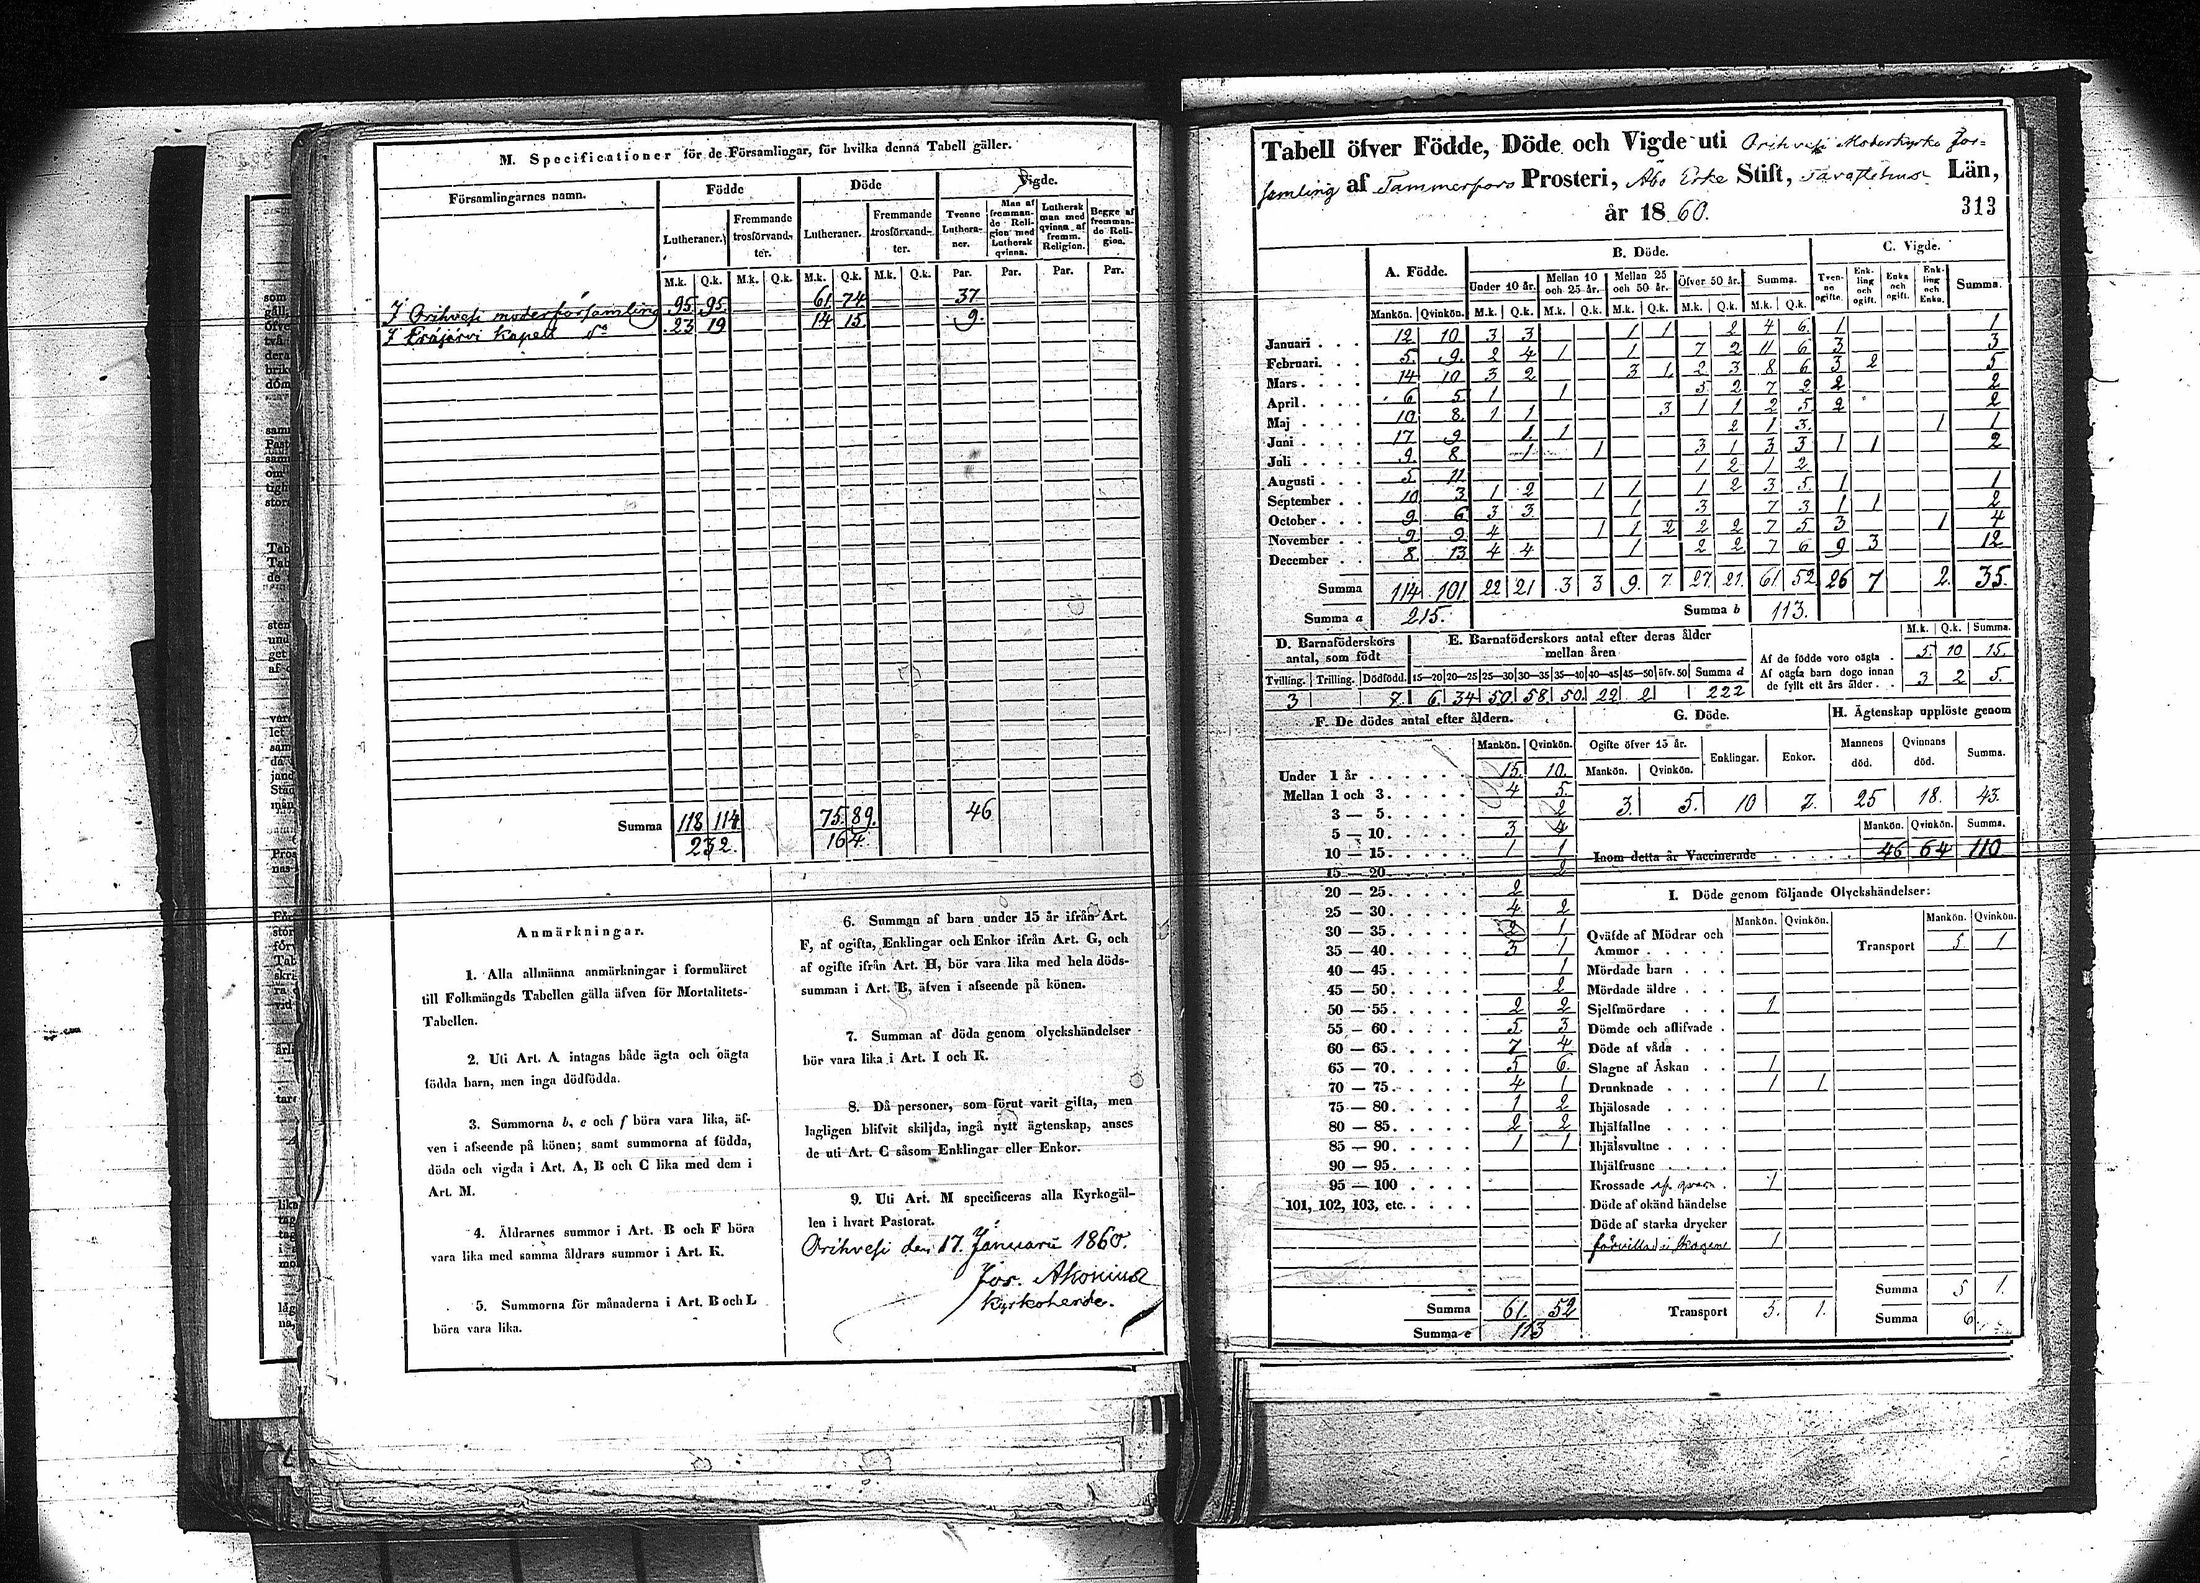 M. Specificationer för de Församlingar, för hvilka denna Tabell gäller.
Församlingarnes namn. Födde Döde Vigde.
Lutheraner. Fremmande trosförvandter. Lutheraner. Fremmande trosförvandter. Tvenne Lutheraner. Man af fremmande Religion med Luthersk qvinna. Luthersk man med qvinna af fremm. Religion. Begge af fremmande Religion.
M.k. Q.k. M.k. Q.k. M.k. Q.k. M.k. Q.k. Par. Par. Par. Par.
I Orihvesi moderförsamling 95 95 61 74 37
I Eräjärvi Kapell 23 19 14 15 9.
Summa 118 114 75. 89. 46
232. 164.
Anmärkningar.
1. Alla allmänna anmärkningar i formuläret
till Folkmängds Tabellen gälla äfven för Mortalitets-
Tabellen.
2. Uti Art. A intagas både ägta och oägta
födda barn, men inga dödfödda.
3. Summorna b, e och f böra vara lika, äf-
ven i afseende på könen; samt summorna af födda,
döda och vigda i Art. A, B och C lika med dem i
Art. M.
4. Åldrarnes summor i Art. B och F böra
vara lika med samma åldrars summor i Art. K.
5. Summorna för månaderna i Art. B och L
böra vara lika.
6. Summan af barn under 15 år ifrån Art.
F, af ogifta, Enklingar och Enkor ifrån Art. G, och
af ogifte ifrån Art. H, bör vara lika med hela döds-
summan i Art. B, äfven i afseende på könen.
7. Summan af döda genom olyckshändelser
bör vara lika i Art. I och K.
8. Då personer, som förut varit gifta, men
lagligen blifvit skiljda, ingå nytt ägtenskap, anses
de uti Art. C såsom Enklingar eller Enkor.
9. Uti Art. M specificeras alla Kyrkogäl-
len i hvart Pastorat.
Orihvesi den 17. Januarii 1860.
Jos. Akonius
Kyrkoherde.
Tabell öfver Födde, Döde och Vigde uti Orihvesi Moderkyrko För-
samling af Tammerfors Prosteri, Åbo Erke Stift, Tavastehus Län,
år 1860.
313
A. Födde. B. Döde. C. Vigde.
Under 10 år. Mellan 10 och 25 år. Mellan 25 och 50 år. Öfver 50 år. Summa. Tvenne ogifte. Enkling och ogift. Enka och ogift. Enkling och Enka. Summa.
Mankön. Qvinkön. M.k. Q.k. M.k. Q.k. M.k. Q.k. M.k. Q.k. M.k. Q.k.
Januari 12 10 3 3 1 1 2 4 6 1 1
Februari. 5 9. 2 4 1 1 7 2 11 6 3 3
Mars 14 10 3 2 3 1 2 3 8 6 3 2 5
April 6 5 1 1 5 2 7 2 2 2
Maj 10 8. 1 1 3 1 1 2 5 2 2
Juni 17 9 1 1 2 1 3. 1 1
Juli 9 8 1 1 3 1 3 3 1 1 2
Augusti 5 11 1 2 1 2
September 10 3 1 2 1 1 1 2 3 5 1 1
October 9 6 3 3 1 3 7 3 1 1 2
November 9 9 4 1 1 2 2 2 7 5 3 1 4
December 8 13 4 4 1 2 2 7 6 9 3 12
Summa 114 101 22 21 3 3 9. 7. 27 21. 61 52 26 7 2. 35.
Summa a 215. Summa b 113.
D. Barnaföderskors antal, som födt
Tvilling. Trilling. Dödfödd.
3 7.
E. Barnaföderskors antal efter deras ålder mellan åren
15—20 20—25 25—30 30—35 35—40 40—45 45—50 öfv. 50 Summa d
6 34 50 58 50. 22 2 222
M.k. Q.k. Summa.
Af de födde voro oägta 5. 10 15.
Af oägta barn dogo innan
de fyllt ett års ålder 3 2 5.
F. De dödes antal efter åldern.
Mankön. Qvinkön.
Under 1 år 15 10.
Mellan 1 och 3 4 5.
3 — 5 2
5 — 10 3 4
10 — 15 1 1
15 — 20 2
20 — 25 2
25 — 30 4 2
30 — 35 2 1
35 — 40 3 1
40 — 45 1
45 — 50 2
50 — 55 2 2
55 — 60 5 3
60 — 65 7 4
65 — 70 5 6.
70 — 75 4 1
75 — 80 1 2
80 — 85 2 2
85 — 90 1 1
90 — 95
95 — 100
101, 102, 103, etc.
Summa 61. 52
Summa e 113
G. Döde.
Ogifte öfver 15 år. Enklingar. Enkor.
Mankön. Qvinkön.
3. 5. 10 7.
H. Ägtenskap upplöste genom
Mannens död. Qvinnans död. Summa.
25 18. 43.
Mankön. Qvinkön. Summa.
Inom detta år Vaccinerade 46 64 110
I. Döde genom följande Olyckshändelser:
Mankön. Qvinkön. Mankön. Qvinkön.
Qväfde af Mödrar och
Ammor Transport 5 1
Mördade barn
Mördade äldre
Sjelfmördare 1
Dömde och aflifvade
Döde af våda
Slagne af Åskan 1
Drunknade 1 1
Ihjälosade
Ihjälfallne
Ihjälsvultne
Ihjälfrusne
Krossade af qvarn 1
Döde af okänd händelse
Döde af starka drycker
förvillad i skogen 1
Summa 5 1.
Transport 5. 1. Summa 6.